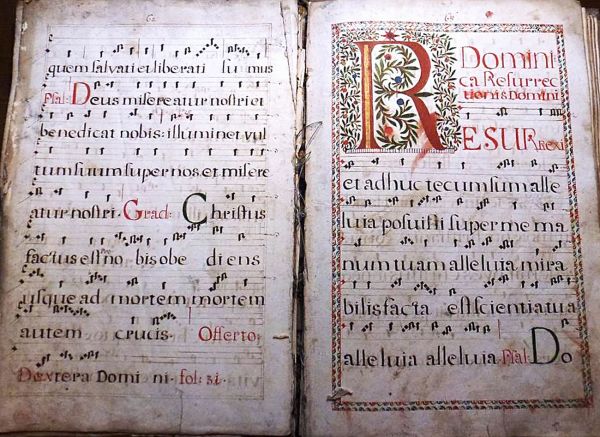 62
quem salvati et liberati sumus
Psal: Deus misereatur nostri et
benedicat nobis: illuminet vul
tum suum super nos et misere
atur nostri. Grad: Christus
factus est no bis obe di ens
usque ad mortem mortem
autem crucis Offerto:
Dextera Domi ni fol: 31.
Domini
ca Resurrec
tionis Domini
RESURrexi
et adhuc tecum sum alle
luia posuisti super me ma
num tuam alleluia mira
bilis facta est scientia tua
alleluia alleluia Psal: Do